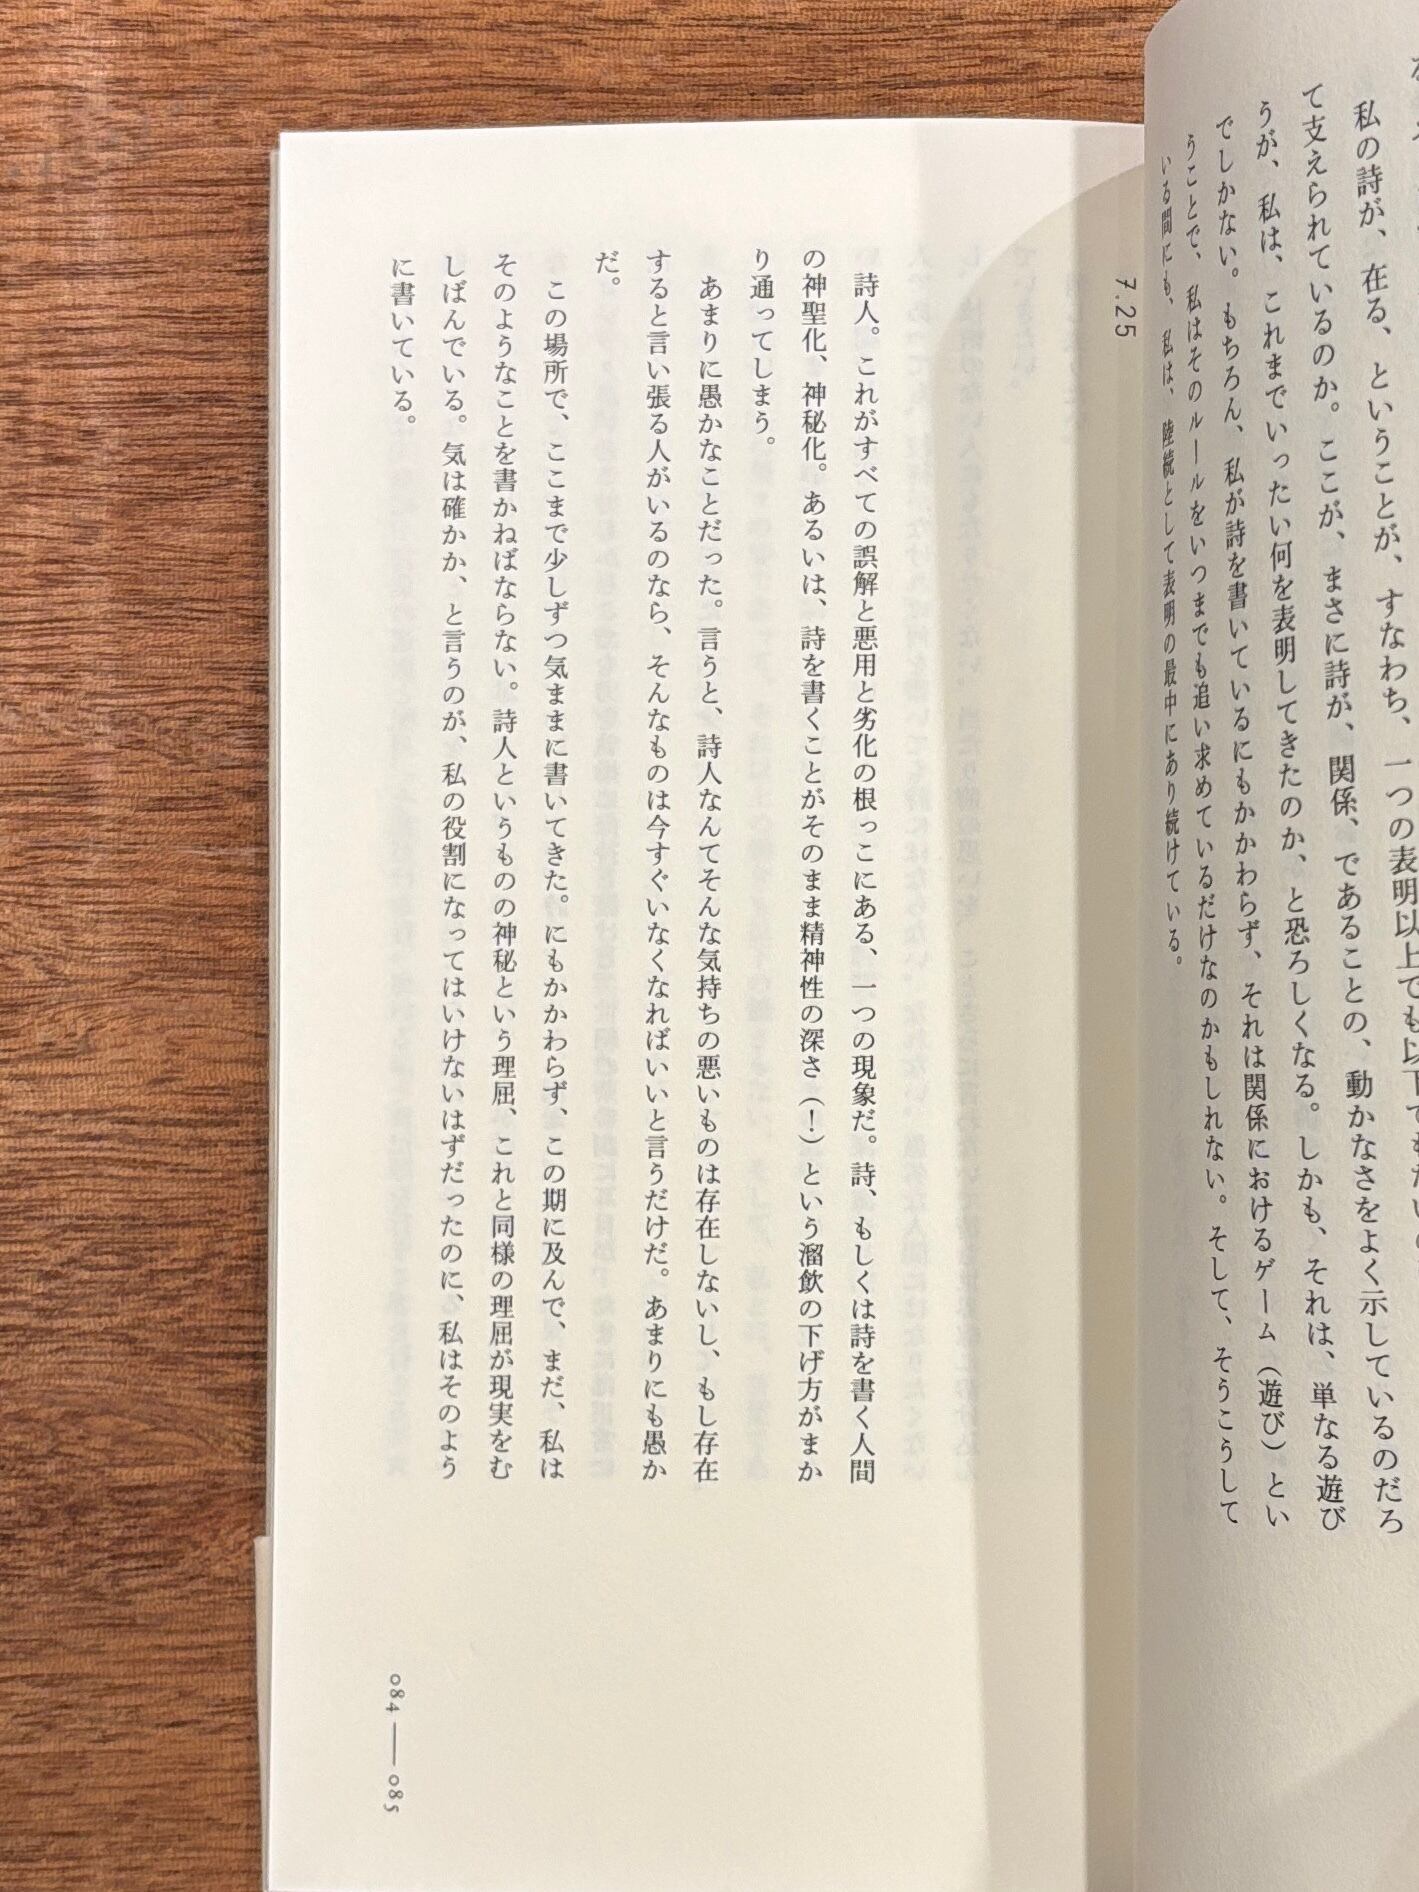 私の詩が、在る、ということが、すなわち、一つの表明以上でも以下でもない
て支えられているのか。ここが、まさに詩が、関係、であることの、動かなさをよく示しているのだろ
うが、私は、これまでいったい何を表明してきたのか、と恐ろしくなる。しかも、それは、単なる遊び
でしかない。もちろん、私が詩を書いているにもかかわらず、それは関係におけるゲーム（遊び）とい
うことで、私はそのルールをいつまでも追い求めているだけなのかもしれない。そして、そうこうして
いる間にも、私は、陸続として表明の最中にあり続けている。
7.25
詩人。これがすべての誤解と悪用と劣化の根っこにある、一つの現象だ。詩、もしくは詩を書く人間
の神聖化、神秘化。あるいは、詩を書くことがそのまま精神性の深さ（！）という溜飲の下げ方がまか
り通ってしまう。
あまりに愚かなことだった。言うと、詩人なんてそんな気持ちの悪いものは存在しないし、もし存在
すると言い張る人がいるのなら、そんなものは今すぐいなくなればいいと言うだけだ。あまりにも愚か
だ。
この場所で、ここまで少しずつ気ままに書いてきた。にもかかわらず、この期に及んで、まだ、私は
そのようなことを書かねばならない。詩人というものの神秘という理屈、これと同様の理屈が現実をむ
しばんでいる。気は確かか、と言うのが、私の役割になってはいけないはずだったのに、私はそのよう
に書いている。
084 —— 085